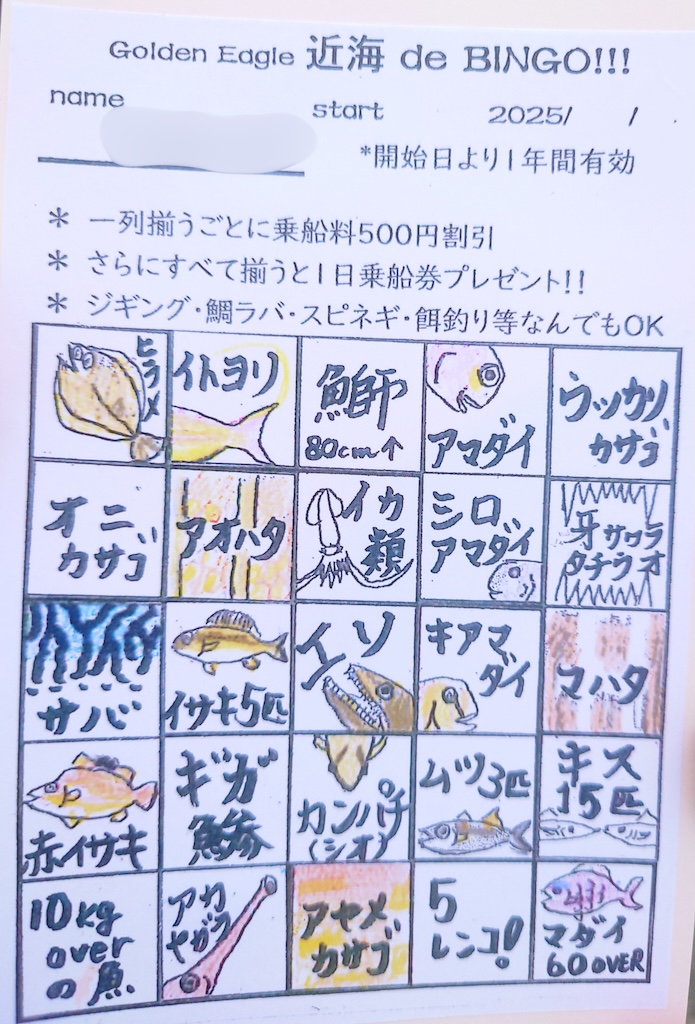 Golden Eagle 近海 de BINGO!!!
name start 2025/ /
*開始日より1年間有効
* 一列揃うごとに乗船料500円割引
* さらにすべて揃うと1日乗船券プレゼント!!
* ジギング・鯛ラバ・スピネギ・餌釣り等なんでもOK
ヒラメ
イトヨリ
鰤
80cm↑
アマダイ
ウッカリ
カサゴ
オニ
カサゴ
アオハタ
イカ
類
シロ
アマダイ
牙サワラ
タチウオ
サバ
イサキ5匹
イソ
キアマ
ダイ
マハタ
赤イサキ
ギガ
鯵
カンパチ
(シオ)
ムツ3匹
キス
15匹
10kg
over
の魚
アカ
ヤガラ
アヤメ
カサゴ
5
レンコ!
マダイ
60OVER